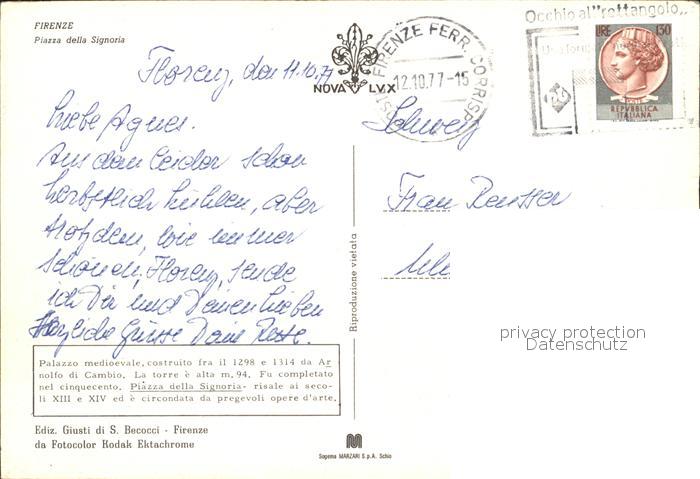 FIRENZE
Piazza della Signoria
Florenz, den 11.10.77
Liebe Agnes.
Aus dem leider schon
herbstlich kühlen, aber
trotzdem, wie immer
schönen, Florenz, sende
ich Dir und Deinen Lieben
Herzliche Grüsse Deine
Palazzo medioevale, costruito fra il 1298 e 1314 da Ar
nolfo di Cambio. La torre è alta m. 94. Fu completato
nel cinquecento. Piazza della Signoria- risale ai seco-
li XIII e XIV ed è circondata da pregevoli opere d'arte.
Ediz. Giusti di S. Becocci - Firenze
da Fotocolor Kodak Ektachrome
NOVA LVX
Riproduzione vietata
Sopema MARZARI S.p.A. Schio
FIRENZE FERR. CORRISP
12.10.77-15
Occhio al "rettangolo"
LIRE 130
POSTE
REPVBBLICA
ITALIANA
Schweiz
Frau
privacy protection
Datenschutz